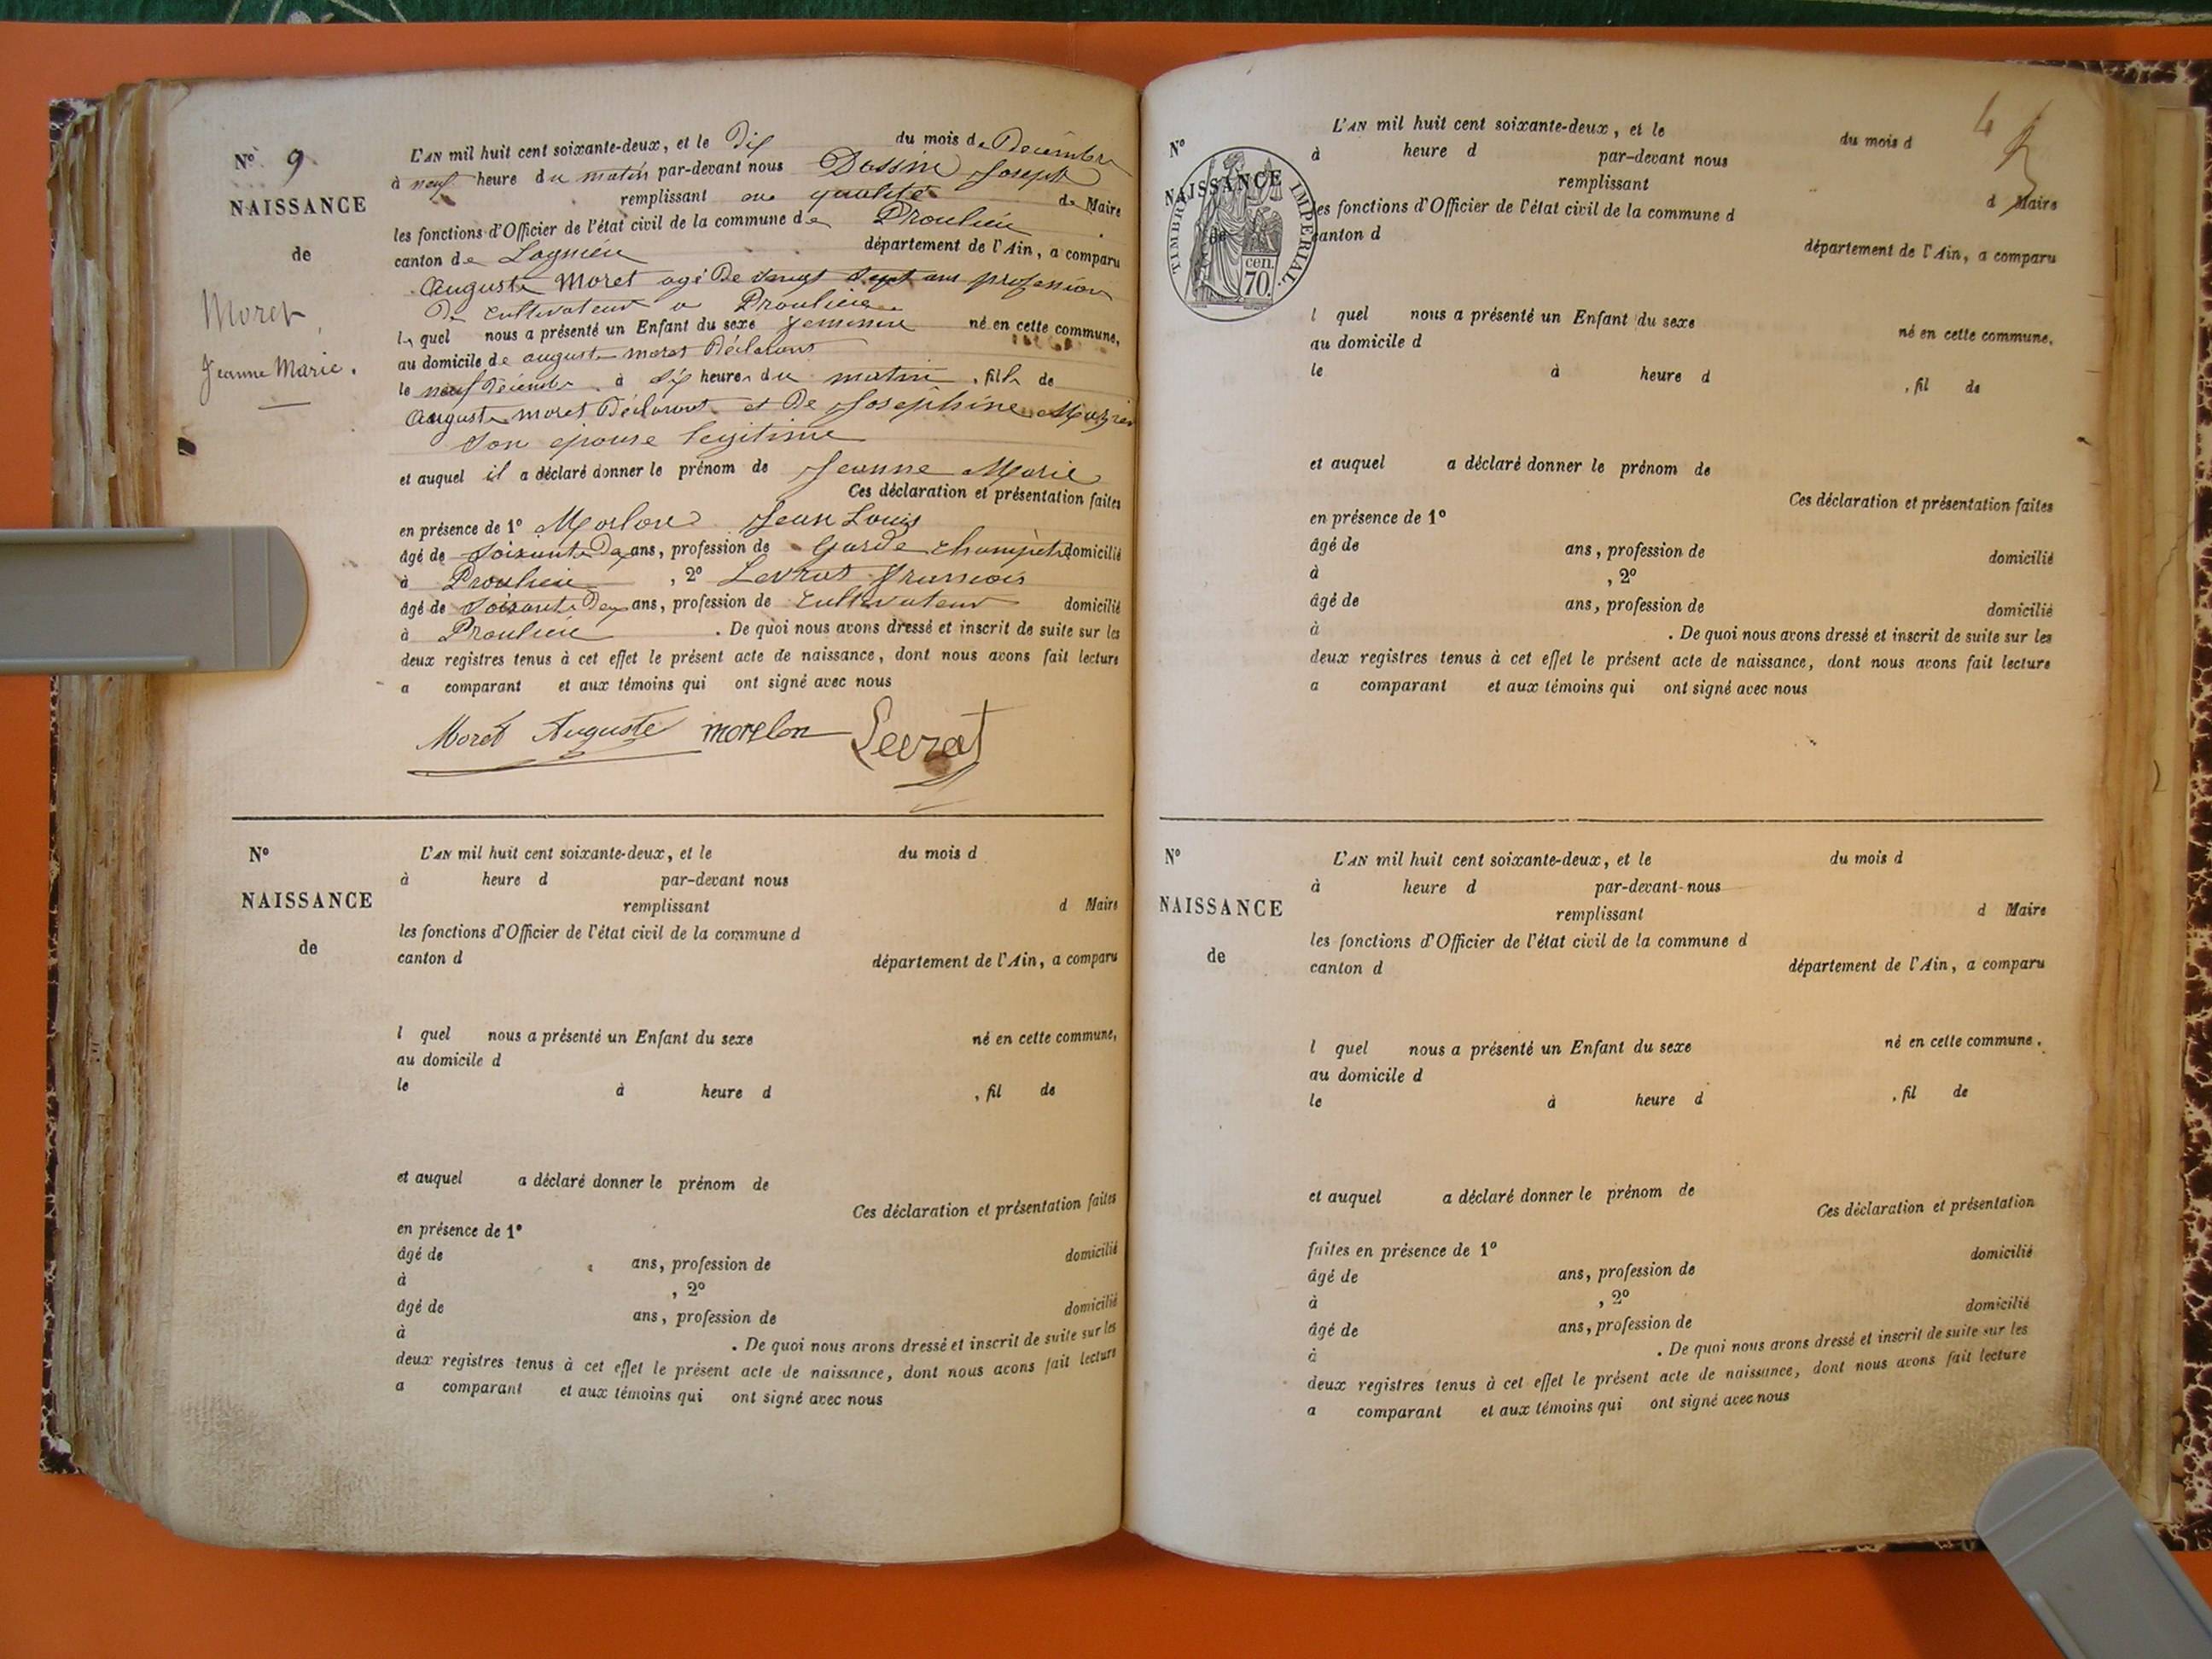 N° 9
NAISSANCE
de
Moret
Jeanne Marie.
L'AN mil huit cent soixante-deux, et le Dix du mois de Decembre
à neuf heure du matin par-devant nous Dossin Joseph
remplissant en qualité de Maire
les fonctions d'Officier de l'état civil de la commune de Proulieu
canton de Lagnieu département de l'Ain, a comparu
Auguste Moret agé De vingt Sept ans profession
De cultivateur a Proulieu
le quel nous a présenté un Enfant du sexe feminin né en cette commune,
au domicile de auguste moret Déclarant
le neuf Décembre à dix heures du matin, fille de
Auguste moret Déclarant et De Josephine
Son epouse legitime
et auquel il a déclaré donner le prénom de Jeanne Marie
Ces déclaration et présentation faites
en présence de 1° Morlon Jean Louis
âgé de Soixante Dix ans, profession de Garde champêtre domicilié
à Proulieu, 2° Levrat francois
âgé de Soixante Dix ans, profession de Cultivateur domicilié
à Proulieu. De quoi nous avons dressé et inscrit de suite sur les
deux registres tenus à cet effet le présent acte de naissance, dont nous avons fait lecture
a comparant et aux témoins qui ont signé avec nous
Moret Auguste morelon Levrat
N°
NAISSANCE
de
L'AN mil huit cent soixante-deux, et le du mois d
à heure d par-devant nous
remplissant d Maire
les fonctions d'Officier de l'état civil de la commune d
canton d département de l'Ain, a comparu
l quel nous a présenté un Enfant du sexe né en cette commune,
au domicile d
le à heure d , fil de
et auquel a déclaré donner le prénom de
Ces déclaration et présentation faites
en présence de 1°
âgé de ans, profession de domicilié
à , 2°
âgé de ans, profession de domicilié
à . De quoi nous avons dressé et inscrit de suite sur les
deux registres tenus à cet effet le présent acte de naissance, dont nous avons fait lecture
a comparant et aux témoins qui ont signé avec nous
4
N°
NAISSANCE
de
TIMBRE IMPÉRIAL.
cen.
70.
L'AN mil huit cent soixante-deux, et le du mois d
à heure d par-devant nous
remplissant d Maire
les fonctions d'Officier de l'état civil de la commune d
canton d département de l'Ain, a comparu
l quel nous a présenté un Enfant du sexe né en cette commune,
au domicile d
le à heure d , fil de
et auquel a déclaré donner le prénom de
Ces déclaration et présentation faites
en présence de 1°
âgé de ans, profession de domicilié
à , 2°
âgé de ans, profession de domicilié
à . De quoi nous avons dressé et inscrit de suite sur les
deux registres tenus à cet effet le présent acte de naissance, dont nous avons fait lecture
a comparant et aux témoins qui ont signé avec nous
N°
NAISSANCE
de
L'AN mil huit cent soixante-deux, et le du mois d
à heure d par-devant-nous
remplissant d Maire
les fonctions d'Officier de l'état civil de la commune d
canton d département de l'Ain, a comparu
l quel nous a présenté un Enfant du sexe né en cette commune.
au domicile d
le à heure d , fil de
et auquel a déclaré donner le prénom de
Ces déclaration et présentation
faites en présence de 1°
âgé de ans, profession de domicilié
à , 2°
âgé de ans, profession de domicilié
à . De quoi nous avons dressé et inscrit de suite sur les
deux registres tenus à cet effet le présent acte de naissance, dont nous avons fait lecture
a comparant et aux témoins qui ont signé avec nous